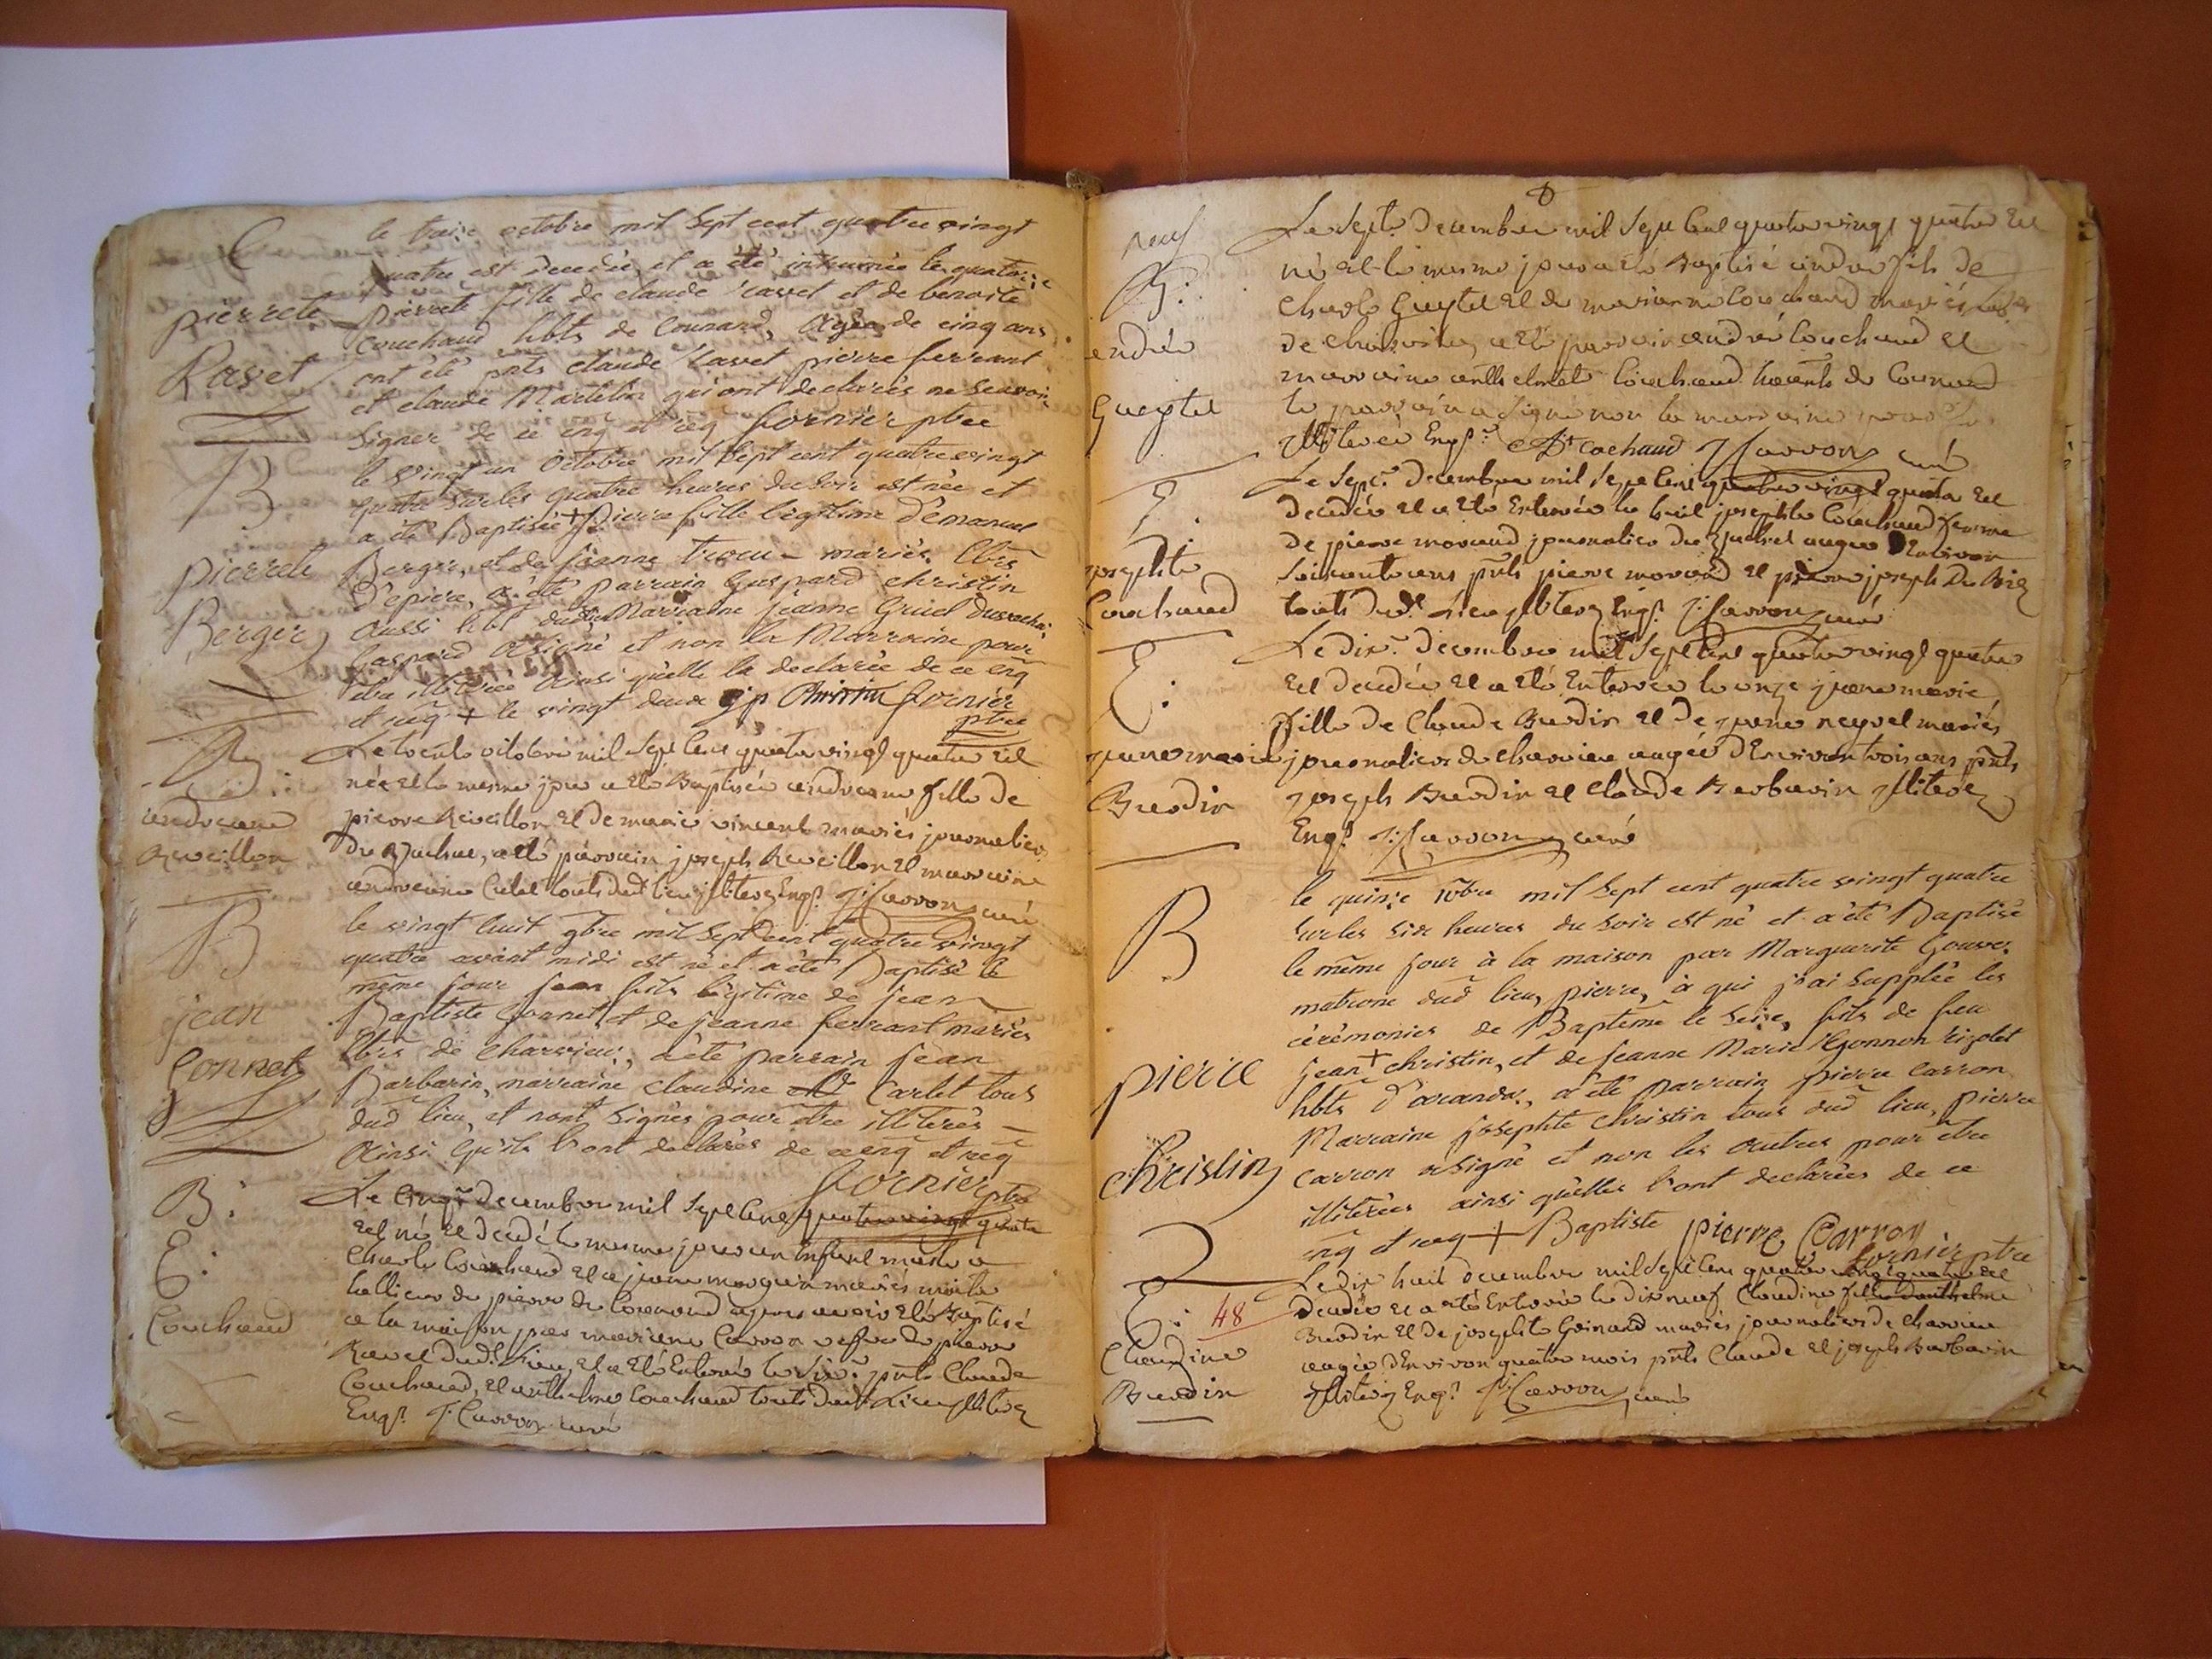 E
le treize octobre mil sept cent quatre vingt
quatre est decedée et a été inhumée le quatorze
pierrete
pierrete fille de claude ravet et de benoite
couchaud hbts de Counand, Agée de cinq ans
Ravet
ont été pnts claude ravet pierre ferrant
et claude Martelin qui ont declarés ne scavoir
signer de ce enq et req fornier ptre
B
le vingt un octobre mil sept cent quatre vingt
quatre sur les quatre heures du soir est née et
a été Baptisée + pierre fille legitime d'emanuel
pierrete
Berger, et de jeanne mariés lbrs
D'epiere, a été parrain Gaspard christin
Berger
aussi hbt dud Marraine jeanne
Gaspard a signé et non la Marraine pour
être illitérée ainsi qu'elle la declarée de ce enq
et req + le vingt deux jp Christin fornier
ptre
B:
Le trente octobre mil sept cent quatre vingt quatre est
née et le meme jour a été Baptisée andreanne fille de
andreanne
pierre Reveillon et de marie vincent mariés journalier
Reveillon
du a été parrain joseph Reveillon et marraine
andreanne touts dud lieu illiterez Enqs J: Carron curé
B
le vingt huit 9bre mil sept cent quatre vingt
quatre avant midi est né et a été Baptisé le
même jour jean fils légitime de jean
jean
Baptiste Gonnet, et de jeanne ferrant mariés
lbrs de Charvieu, a été parrain jean
Gonnet
Barbarin, marraine claudine Carlet tous
dud lieu, et n'ont signés pour être illitérés
Ainsi qu'ils l'ont declarés de ce enq et req
fornier ptre
B:
Le cinq decembre mil sept cent quatre vingt quatre
est né et decedé le meme jour un enfant male a
E:
Charle Couchaud et a jeanne mariés
de pierre de Counand apres avoir été Baptisé
Couchaud
a la maison par marianne Carron vefve de pierre
Ravet dudt Lieu, et a été Enterré le six. pnts Claude
Couchaud, et anthelme Couchaud touts dudt Lieu illiterez
Enqs J: Carron curé
Le sept decembre mil sept cent quatre vingt quatre est
B:
né et le meme jour a été Baptisé andré fils de
Charle Gueytel et de marianne Couchaud mariés
andré
de a été parrain andré Couchaud et
marraine Couchaud habants de Counand
Gueytel
le parrain a signé non la marraine pour
illiterée Enqse A Cochaud J Carron curé
E:
Le sept decembre mil sept cent quatre vingt quatre est
decedée et a été Enterrée le huit josephte Couchaud femme
josephte
de pierre morand journalier du agée D'Environ
soixante ans pnts pierre morand et pierre joseph
Couchaud
touts dudt Lieu illiterez Enqs J: Carron curé
E:
Le dix decembre mil sept cent quatre vingt quatre
est decedée et a été Enterrée le onze jeane marie
fille de Claude Burdin et de jeane neyret mariés
jeane marie
journaliers de charvieu agée D'Environ trois ans pnts
Burdin
joseph Burdin et Claude Barbarin illiterez
Enqs J: Carron curé
B
le quinze 10bre mil sept cent quatre vingt quatre
sur les six heures du soir est né et a été Baptisé
le même jour à la maison par Marguerite
matrone dud lieu, pierre, à qui j'ai supplée les
cérémonies de Baptême le seize, fils de feu
pierre
jean + christin, et de jeanne Marie
hbts d'arandon, a été parrain pierre Carron
Marraine josephte Christin tous dud lieu, pierre
Christin
Carron a signé et non les autres pour être
illitérées ainsi qu'elles l'ont declarées de ce
enq et req + Baptiste pierre Carron
fornier ptre
E: 48
Le dix huit decembre mil sept cent quatre vingt quatre est
decedée et a été Enterrée le dix neuf Claudine fille d'anthelme
Claudine
Burdin et de josephte mariés journaliers de charvieu
agée d'Environ quatre mois pnts Claude et joseph Barbarin
Burdin
illiterez Enqs J: Carron curé